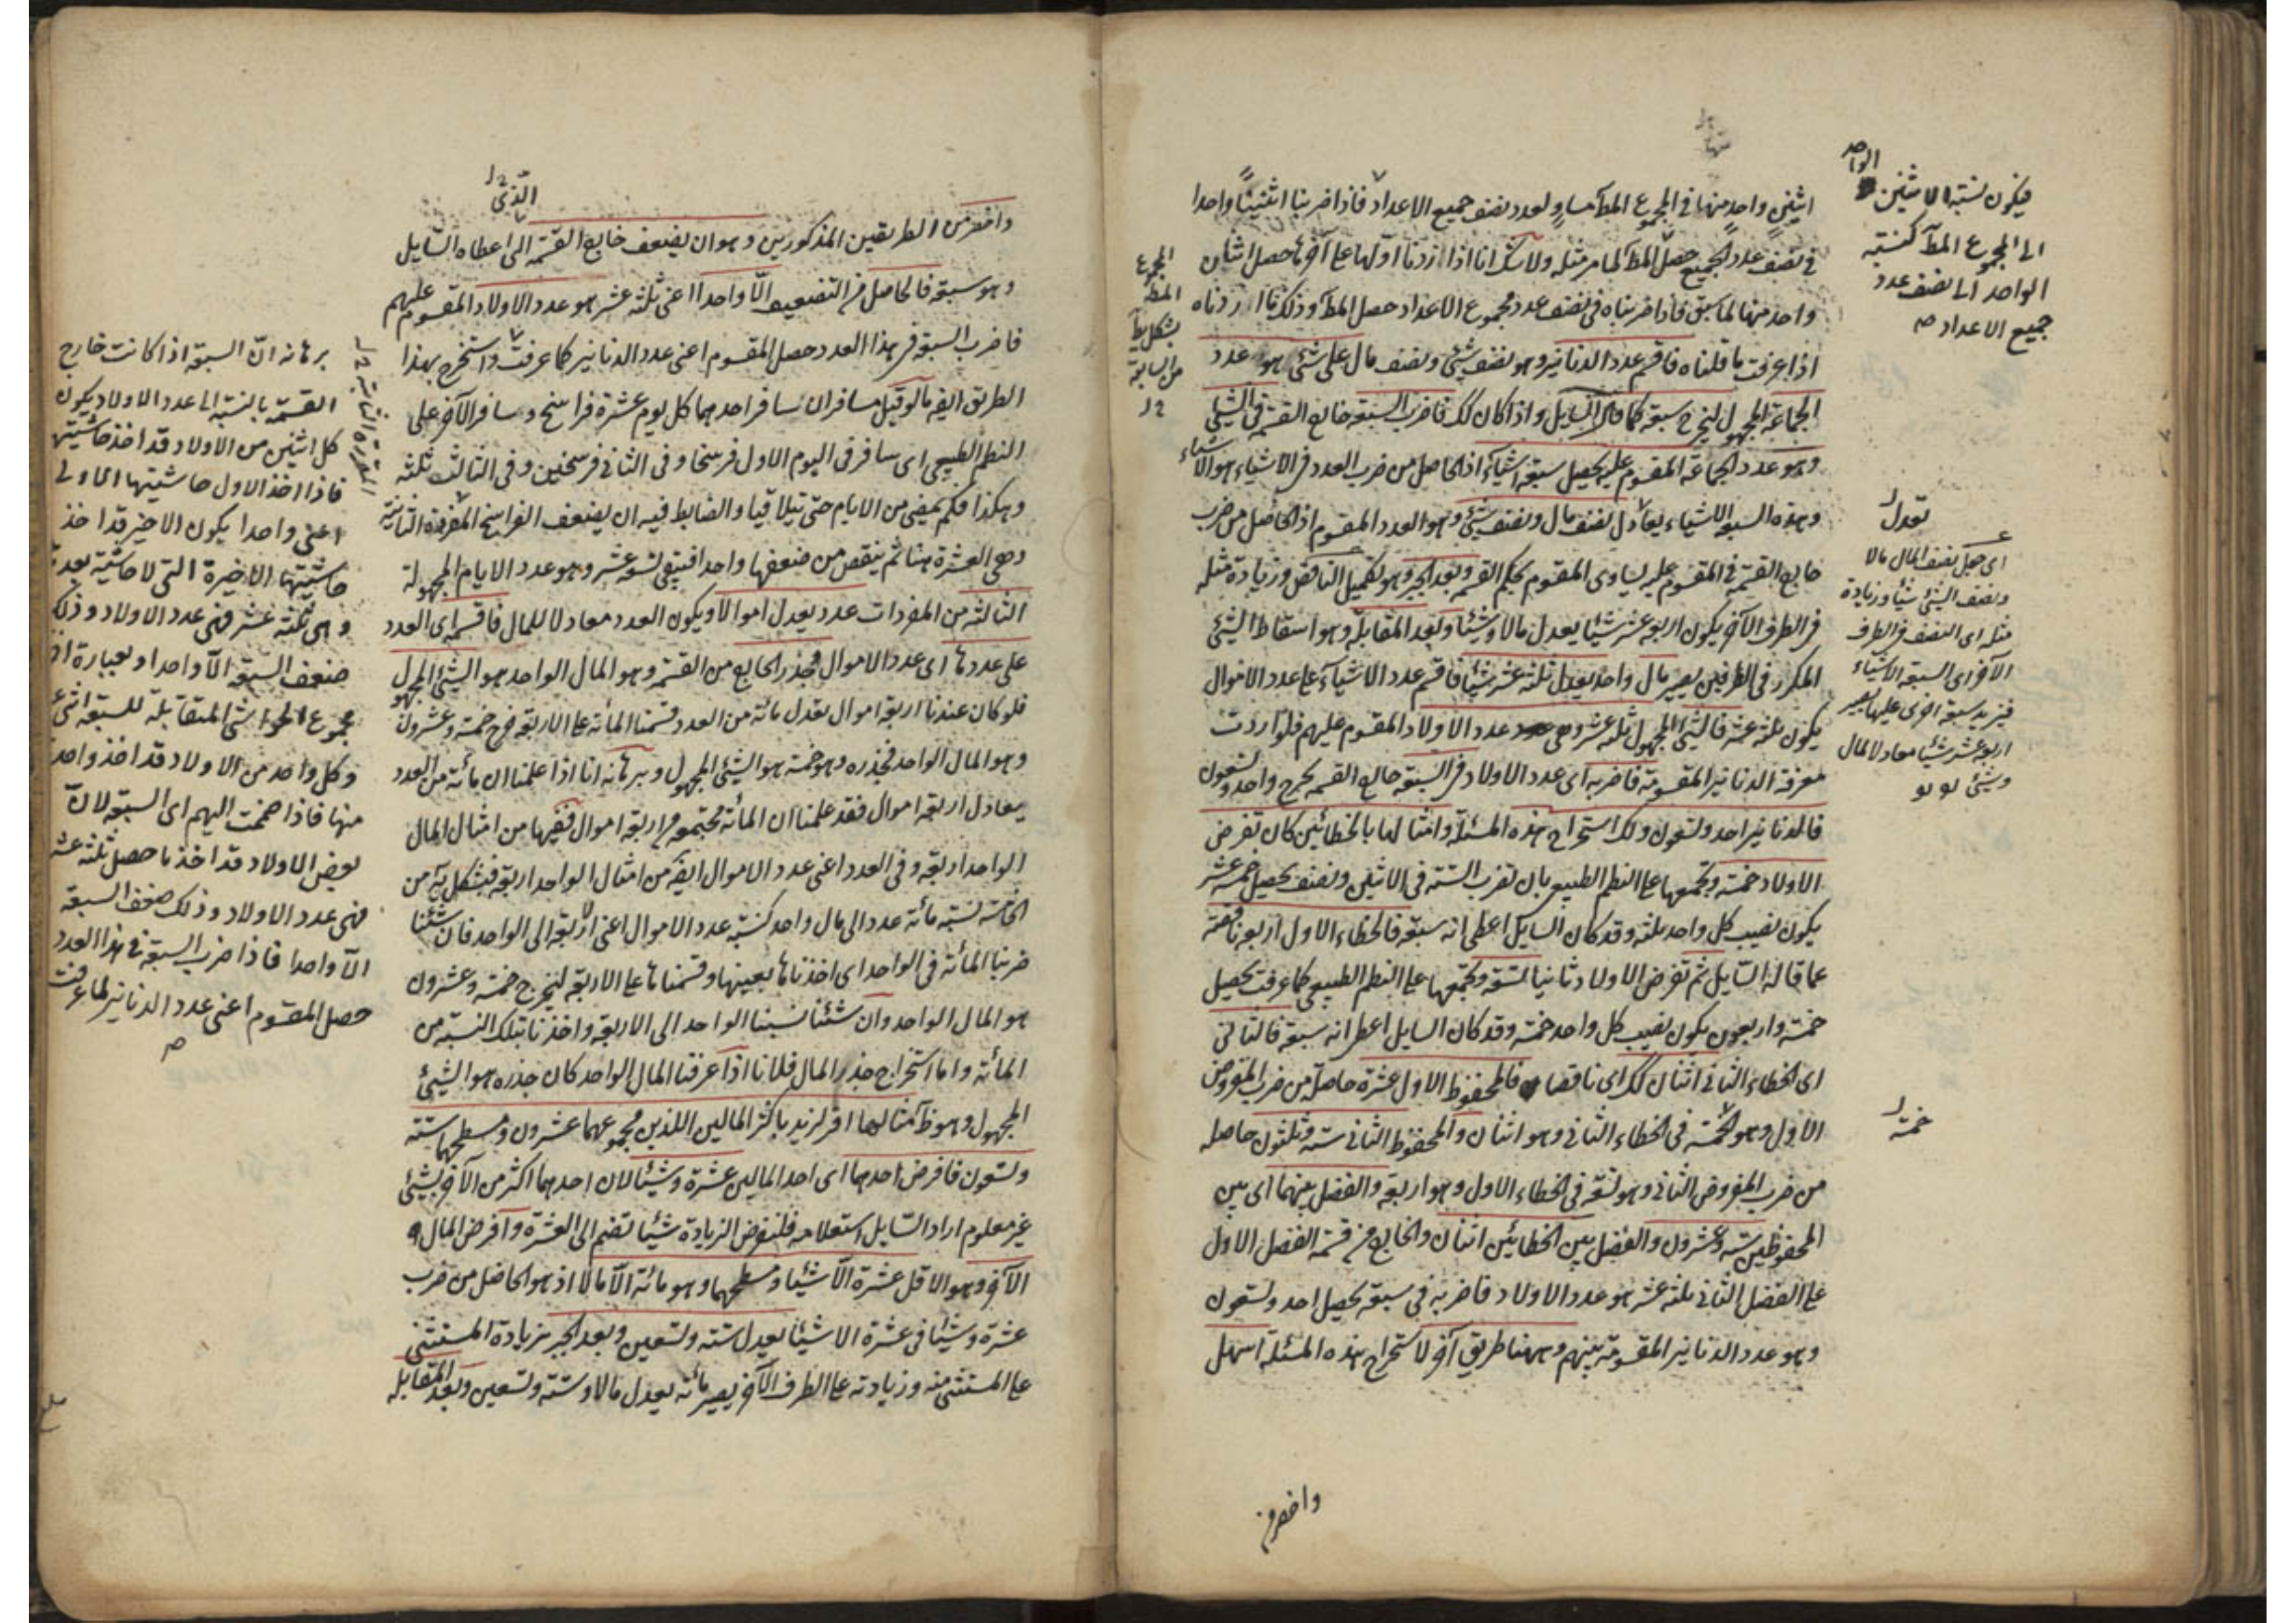 اثنين واحد منها في المجموع المط مساو لعدد نصف جميع الاعداد فاذا ضربنا اثنينًا واحدا
في نصف عدد الجميع حصل المط كما مر مثله ولا شك انا اذا زدنا اولها على آخرها حصل اثنان
وواحد منها لما سبق فاذا ضربناه في نصف عدد مجموع الاعداد حصل المط وذلك ما اردناه
اذا عرفت ما قلناه فاقسم عدد الدنانير وهو نصف شئ ونصف مال على شئ هو عدد
الجماعة المجهول ليخرج سبعة كما قال السايل واذا كان كك فاضرب السبعة خارج القسمة في الشئ
وهو عدد الجماعة المقسوم عليه يحصل سبعة اشياء اذ الحاصل من ضرب العدد في الاشياء هو الاشياء
وهذه السبعة الاشياء يعادل نصف مال ونصف شئ وهو العدد المقسوم اذ الحاصل من ضرب
خارج القسمة في المقسوم عليه يساوى المقسوم بحكم القسمة وبعد الجبر وهو تكميل الناقص وزيادة مثله
في الطرف الآخر يكون اربعة عشر شيئا يعدل مالا وشيئا وبعد المقابلة وهو اسقاط الشئ
المكرر في الطرفين يصير مال واحد يعدل ثلثة عشر شيئا فاقسم عدد الاشياء على عدد الاموال
يكون ثلثة عشر فالشئ المجهول ثلثة عشر وهى عدد الاولاد المقسوم عليهم فلو اردت
معرفة الدنانير المقسومة فاضربه اى عدد الاولاد في السبعة خارج القسمة يخرج واحد وتسعون
فالدنانير احد وتسعون ولك استخراج هذه المسئلة وامثالها بالخطائين كان تفرض
الاولاد خمسة وتجمعها على النظم الطبيعى بان تضرب الستة في الاثنين ونصف يحصل خمسة عشر
يكون نصيب كل واحد ثلثة وقد كان السايل اعطى انه سبعة فالخطاء الاول اربعة ناقصة
عما قاله السايل ثم تفرض الاولاد ثانيا تسعة وتجمعها على النظم الطبيعى كما عرفت يحصل
خمسة واربعون يكون نصيب كل واحد خمسة وقد كان السايل اعطى انه سبعة فالثانى
اى الخطاء الثانى اثنان كك اى ناقصا فالمحفوظ الاول عشرة حاصلة من ضرب المفروض
الاول وهو خمسة في الخطاء الثانى وهو اثنان والمحفوظ الثانى ستة وثلثون حاصله
من ضرب المفروض الثانى وهو تسعة في الخطاء الاول وهو اربعة والفضل بينهما اى بين
المحفوظين ستة وعشرون والفضل بين الخطائين اثنان والخارج من قسمة الفضل الاول
على الفضل الثانى ثلثة عشر هو عدد الاولاد فاضربه في سبعة يحصل احد وتسعون
وهو عدد الدنانير المقسومة بينهم وههنا طريق آخر لاستخراج هذه المسئلة اسهل
واخصر من
الواحد
فيكون نسبة الاثنين
الى المجموع المط كنسبة
الواحد الى نصف عدد
جميع الاعداد
المجموع
المط
تعدل
اى جعل نصف المال مالا
ونصف الشئ شيئا وزيادة
مثله اى النصف في الطرف
الآخر اى السبعة الاشياء
فيزيد سبعة اخرى عليها يصير
اربعة عشر شيئا معادلا لمال
وشئ
خمسة
الذى
واخصر من الطريقين المذكورين وهو ان يضعف خارج القسمة الى اعطاه السايل
وهو سبعة فالحاصل من التضعيف الا واحدا اعنى ثلثة عشر هو عدد الاولاد المقسوم عليهم
فاضرب السبعة في هذا العدد حصل المقسوم اعنى عدد الدنانير كما عرفت واستخرج بهذا
الطريق ايضا ما لو قيل مسافران سافر احدهما كل يوم عشرة فراسخ وسافر الآخر على
النظم الطبيعى اى سافر في اليوم الاول فرسخا وفى الثانى فرسخين وفى الثالث ثلثة
وهكذا فكم يمضى من الايام حتى يتلاقيا والضابط فيه ان يضعف الفراسخ المفردة
وهى العشرة هنا ثم ينقص من ضعفها واحد فيبقى تسعة عشر وهو عدد الايام المجهولة
الثالثة من المفردات عدد يعدل اموالا ويكون العدد معادلا للمال فاقسمه اى العدد
على عددها اى عدد الاموال فجذر الخارج من القسمة وهو المال الواحد هو الشئ المجهول
فلو كان عندنا اربعة اموال يعدل مائة من العدد قسمنا المائة على الاربعة خرج خمسة وعشرون
وهو المال الواحد فجذره وهو خمسة هو الشئ المجهول وبرهانه انا اذا علمنا ان مائة من العدد
يعادل اربعة اموال فقد علمنا ان المائة مجتمعة من اربعة اموال ففيها من امثال المال
الواحد اربعة وفى العدد اعنى عدد الاموال ايضا من امثال الواحد اربعة فبشكل من
الخامسة نسبة مائة عدد الى مال واحد كنسبة عدد الاموال اعنى اربعة الى الواحد فان شئنا
ضربنا المائة في الواحد اى اخذناها بعينها وقسمناها على الاربعة ليخرج خمسة وعشرون
هو المال الواحد وان شئنا نسبنا الواحد الى الاربعة واخذنا بتلك النسبة من
المائة واما استخراج جذر المال فلانا اذا عرفنا المال الواحد كان جذره هو الشئ
المجهول وهو ظ مثالها اقر لزيد باكثر المالين اللذين مجموعهما عشرون ومسطحهما ستة
وتسعون فافرض احدهما اى احد المالين عشرة وشيئا لان احدهما اكثر من الآخر بشئ
غير معلوم اراد السايل استعلامه فلنفرض الزيادة شيئا تضم الى العشرة وافرض المال
الآخر وهو الاقل عشرة الا شيئا ومسطحهما وهو مائة الا مالا اذ هو الحاصل من ضرب
عشرة وشيئا في عشرة الا شيئا يعدل ستة وتسعين وبعد الجبر بزيادة المستثنى
على المستثنى منه وزيادته على الطرف الآخر يصير مائة يعدل مالا وستة وتسعين وبعد المقابلة
برهانه ان السبعة اذا كانت خارج
القسمة بالنسبة الى عدد الاولاد يكون
كل اثنين من الاولاد قد اخذ حاشيتها
فاذا اخذ الاول حاشيتها الاولى
اعنى واحدا يكون الاخير قد اخذ
حاشيتها الاخيرة التى لا حاشية بعدها
وهى ثلثة عشر فهى عدد الاولاد وذلك
ضعف السبعة الا واحدا وبعبارة
مجموع الحواشى المتقابلة للسبعة
وكل واحد من الاولاد قد اخذ واحدا
منها فاذا ضمت اليهم اى السبعة لان
بعض الاولاد قد اخذها حصل ثلثة عشر
فهى عدد الاولاد وذلك ضعف السبعة
الا واحدا فاذا ضرب السبعة في هذا العدد
حصل المقسوم اعنى عدد الدنانير لما عرفت